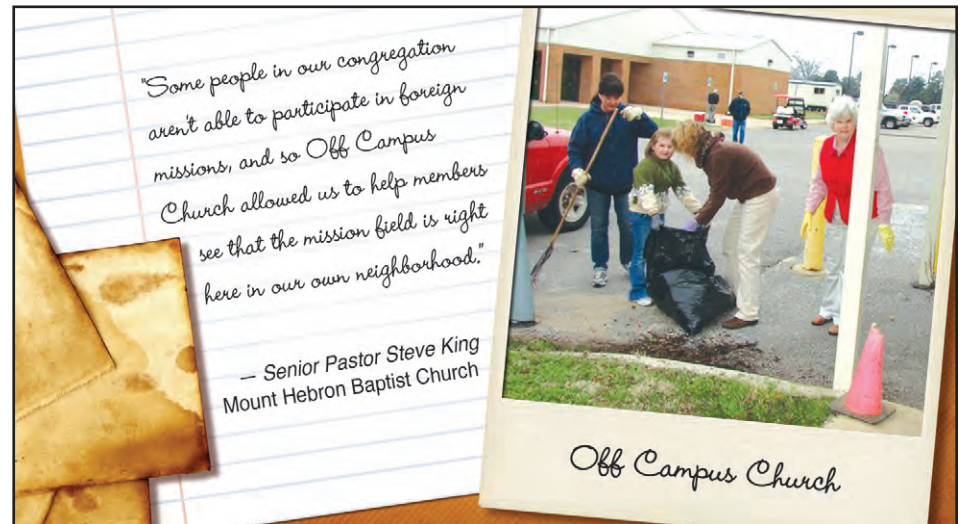 "Some people in our congregation
aren't able to participate in foreign
missions, and so Off Campus
Church allowed us to help members
see that the mission field is right
here in our own neighborhood."
— Senior Pastor Steve King
Mount Hebron Baptist Church
Off Campus Church